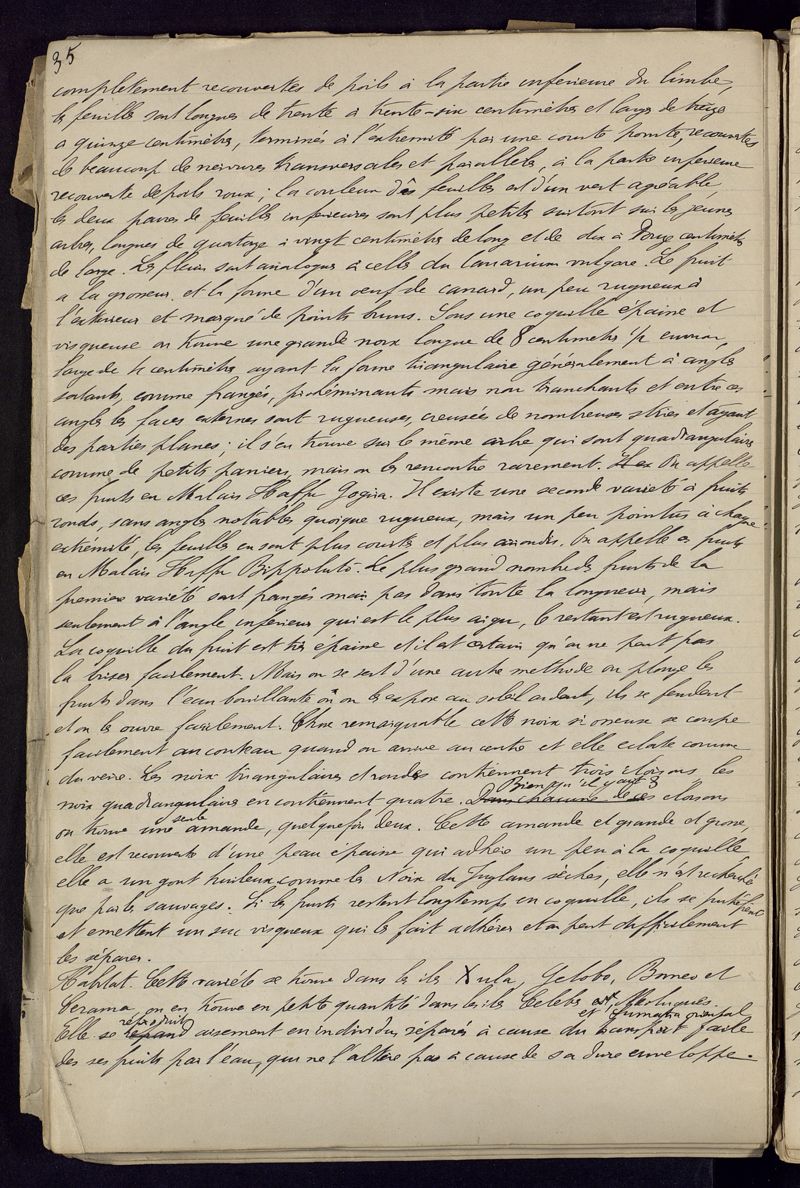 35
completement recouvertes de poils à la partie inferieure du limbe,
les feuilles sont longues de trente à trente-six centimètres et larges de treize
a quinze centimètres, terminés à l'extremité par une courte pointe, recouvertes
de beaucoup de nervures transversales et parallèles, à la partie inferieure
recouverte de poils roux; la couleur des feuilles est d'un vert agréable
les deux paires de feuilles inferieures sont plus petites surtout sur les jeunes
arbres, longues de quatorze à vingt centimètres de long et de dix à douze centimètres
de large. Les fleurs sont analogues à celles du Canarium vulgare. Le fruit
a la grosseur et la forme d'un oeuf de canard, un peu rugueux à
l'exterieur et marqué de points bruns. Sous une coquille épaisse et
visqueuse on trouve une grande noix longue de 8 centimetres 1/2 environ,
large de 4 centimètres ayant la forme triangulaire généralement à angles
saillants, comme frangés, prohéminants mais non tranchants et entre ces
angles les faces externes sont rugueuses, creusées de nombreuses stries et ayant
des parties planes; il s'en trouve sur le même arbre qui sont quadrangulaires
comme de petits paniers, mais on les rencontre rarement. On appelle
ces fruits en Malais Haffu Gogira. Il existe une seconde varieté à fruits
ronds, sans angles notables quoique rugueux, mais un peu pointus à chaque
extrémité, les feuilles en sont plus courtes et plus arrondies. On appelle ces fruits
en Malais Haffu Bippoluto. Le plus grand nombre des fruits de la
premiere variété sont frangés mais pas dans toute la longueur, mais
seulement à l'angle inferieur qui est le plus aigu, le restant est rugueux.
La coquille du fruit est très épaisse et il est certain qu'on ne peut pas
la briser facilement. Mais on se sert d'une autre methode on plonge les
fruits dans l'eau bouillante ou on les expose au soleil ardent, ils se fendent
et on les ouvre facilement. Chose remarquable cette noix si osseuse se coupe
facilement au couteau quand on arrive au centre et elle eclate comme
du verre. Les noix triangulaires et rondes contiennent trois cloisons les
noix quadrangulaires en contiennent quatre. Dans chacune de ces Bien qu'il y ait 3 cloisons
on trouve une seule amande, quelquefois deux. Cette amande est grande et grosse,
elle est recouverte d'une peau épaisse qui adhère un peu à la coquille
elle a un gout huileux comme les Noix du Juglans sèches, elle n'est recherchée
que par les sauvages. Si les fruits restent longtemps en coquille, ils se putréfient
et emettent un suc visqueux qui les fait adhérer et on peut difficilement
les séparer.
Habitat. Cette variété se trouve dans les iles Xula, Gelolo, Borneo et
Cerama on en trouve en petite quantité dans les iles Celebes Moluques et Sumatra oriental
Elle se répand réproduit aisement en individus séparés à cause du transport facile
des ses fruits par l'eau, qui ne l'altère pas à cause de sa dure enveloppe.